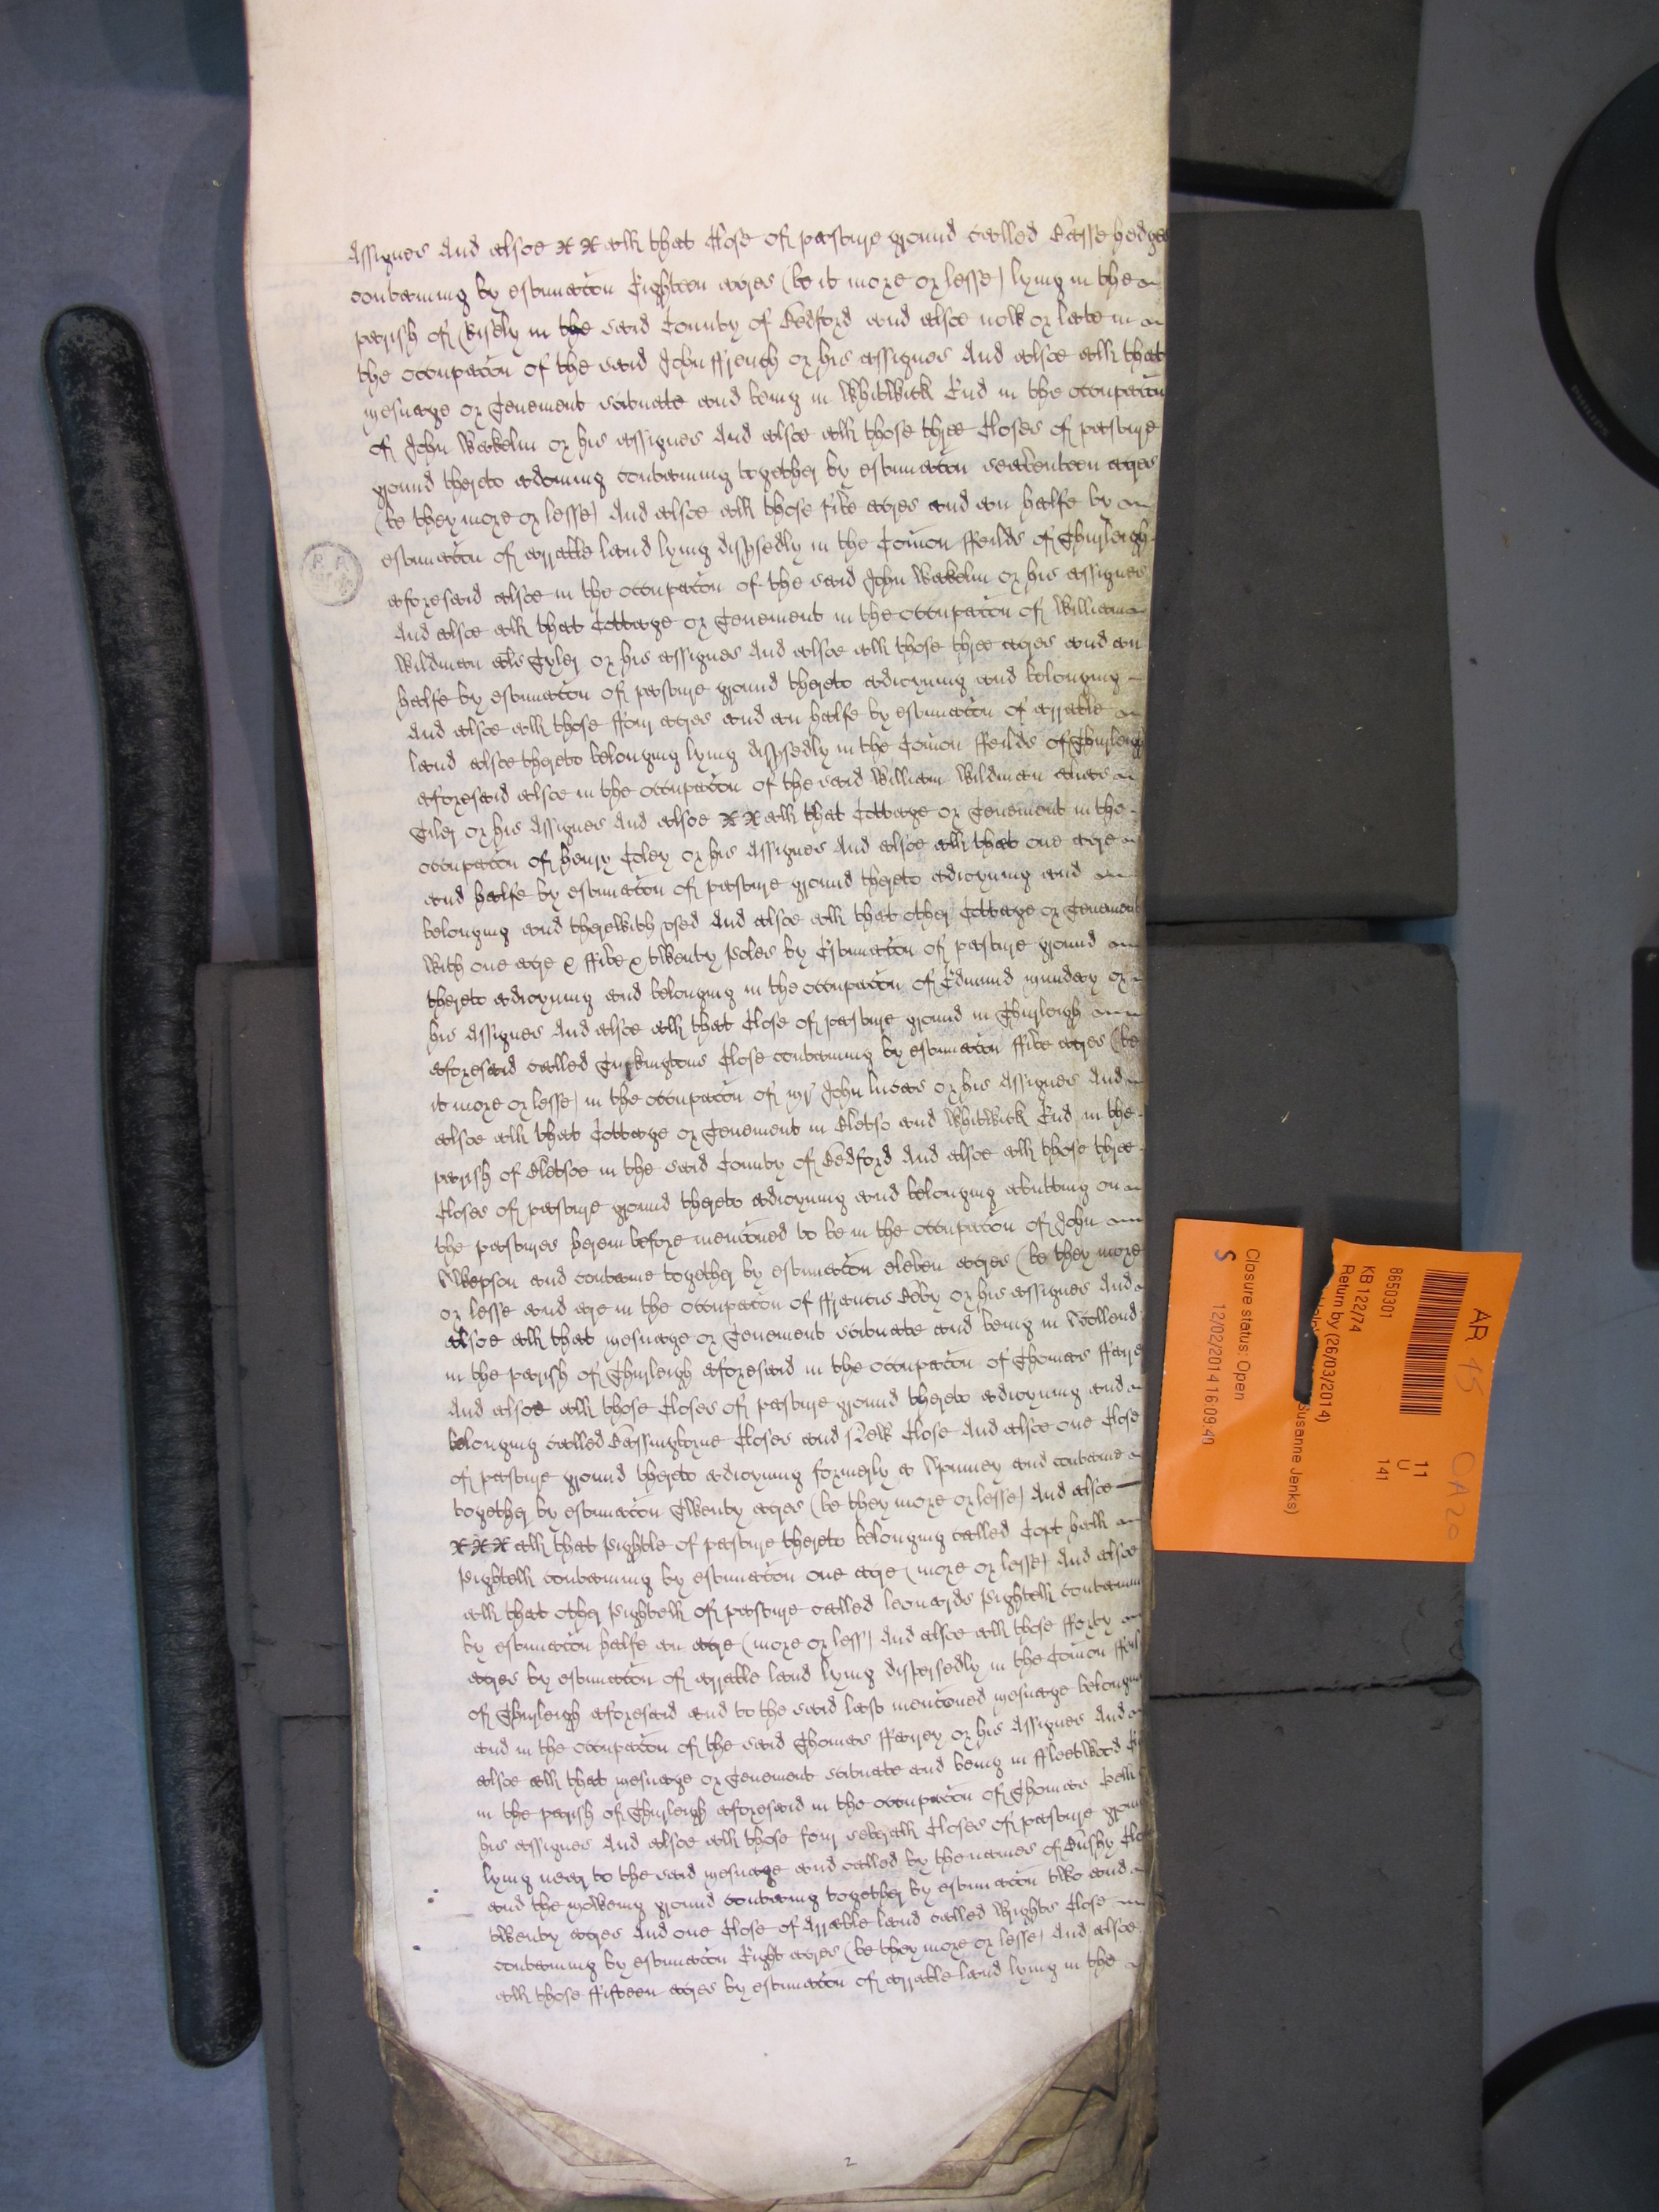 Assignes And alsoe x x all that Close of pasture ground called Basse hedges
containing by estimacon Eighteen acres (be it more or lesse) lying in the
parish of Risely in the said County of Bedford and alsoe now or late in
the occupacon of the said John ffrench or his assignes And alsoe all that
mesuage or Tenement scituate and being in Whitwick End in the occupacon
of John Wakelin or his assignes And alsoe all those three Closes of pasture
ground thereto adoining containing together by estimacon seaventeen acres
(be they more or lesse) And alsoe all those five acres and an halfe by
estimacon of arrable land lying dispsedly in the Comon ffeilds of Thurleigh
aforesaid alsoe in the occupacon of the said John Wakelin or his assignes
And alsoe all that Cottage or Tenement in the occupacon of William
Wildman als Tyler or his assignes And alsoe all those three acres and an
halfe by estimacon of pasture ground thereto adioyning and belonging
And alsoe all those ffour acres and an halfe by estimacon of arrable
land alsoe thereto belonging lying dispsedly in the Comon ffeilds of Thurleigh
aforesaid alsoe in the occupacon of the said William Wildman alias
Tiler or his Assignes And alsoe x x all that Cottage or Tenement in the
occupacon of Henry Coley or his Assignes And alsoe all that one acre
and halfe by estimacon of pasture ground thereto adioyning and
belonging and therewith used And alsoe all that other Cottage or Tenement
with one acre & ffive & twenty poles by Estimacon of pasture ground
thereto adioyning and belonging in the occupacon of Edmund Munday or
his Assignes And alsoe all that Close of pasture ground in Thurleigh
aforesaid called Turkingtons Close containing by estimacon ffive acres (be
it more or lesse) in the occupacon of Mr John Lucas or his Assignes And
alsoe all that Cottage or Tenement in Bletso and Whitwick End in the
parish of Bletsoe in the said County of Bedford And alsoe all those three
Closes of pasture ground thereto adioyning and belonging abutting on
the pastures herein before mencioned to be in the occupacon of John
Wkepson and containe together by estimacon eleven acres (be they more
or lesse and are in the occupacon of ffrancis Boby or his assignes And
alsoe all that mesuage or Tenement scituate and being in Scollend
in the parish of Thurleigh aforesaid in the occupacon of Thomas ffarre
And alsoe all those Closes of pasture ground thereto adioyning and
belonging called Bassingborne Closes and New Close And alsoe one Close
of pasture ground thereto adioyning formerly a Spinney and containe
together by estimacon Twenty acres (be they more or lesse) And alsoe
x x x all that pightle of pasture thereto belonging called Copt hall
pightell containing by estimacon one acre (more or lesse) And alsoe
all that other pightell of pasture called Leonards pightell containin
by estimacon halfe an acre (more or less) And alsoe all those fforty
acres by estimacon of arrable land lying dispersedly in the Comon ffeil
of Thurleigh aforesaid and to the said last mencioned mesuage belongin
and in the occupacon of the said Thomas ffarrey or his Assignes And
alsoe all that mesuage or Tenement scituate and being in ffleetwood
in the parish of Thurleigh aforesaid in the occupacon of Thomas Bell
his assignes And alsoe all those four severall Closes of pasture groun
lying near to the said mesuage and called by the names of Bushy Clo
and the moweing ground containg together by estimacon two and
twenty acres And one Close of Arrable land called Wrights Close
containing by estimacon Eight acres (be they more or lesse) And alsoe
all those ffifteen acres by estimacon of arrable land lying in the
2
AR 45
CA20
8650301
11
KB 122/74
U
Return by (26/03/2014)
141
Susanne Jenks)
Closure status: Open
S
12/02/2014 16:09:40
PHILIPS